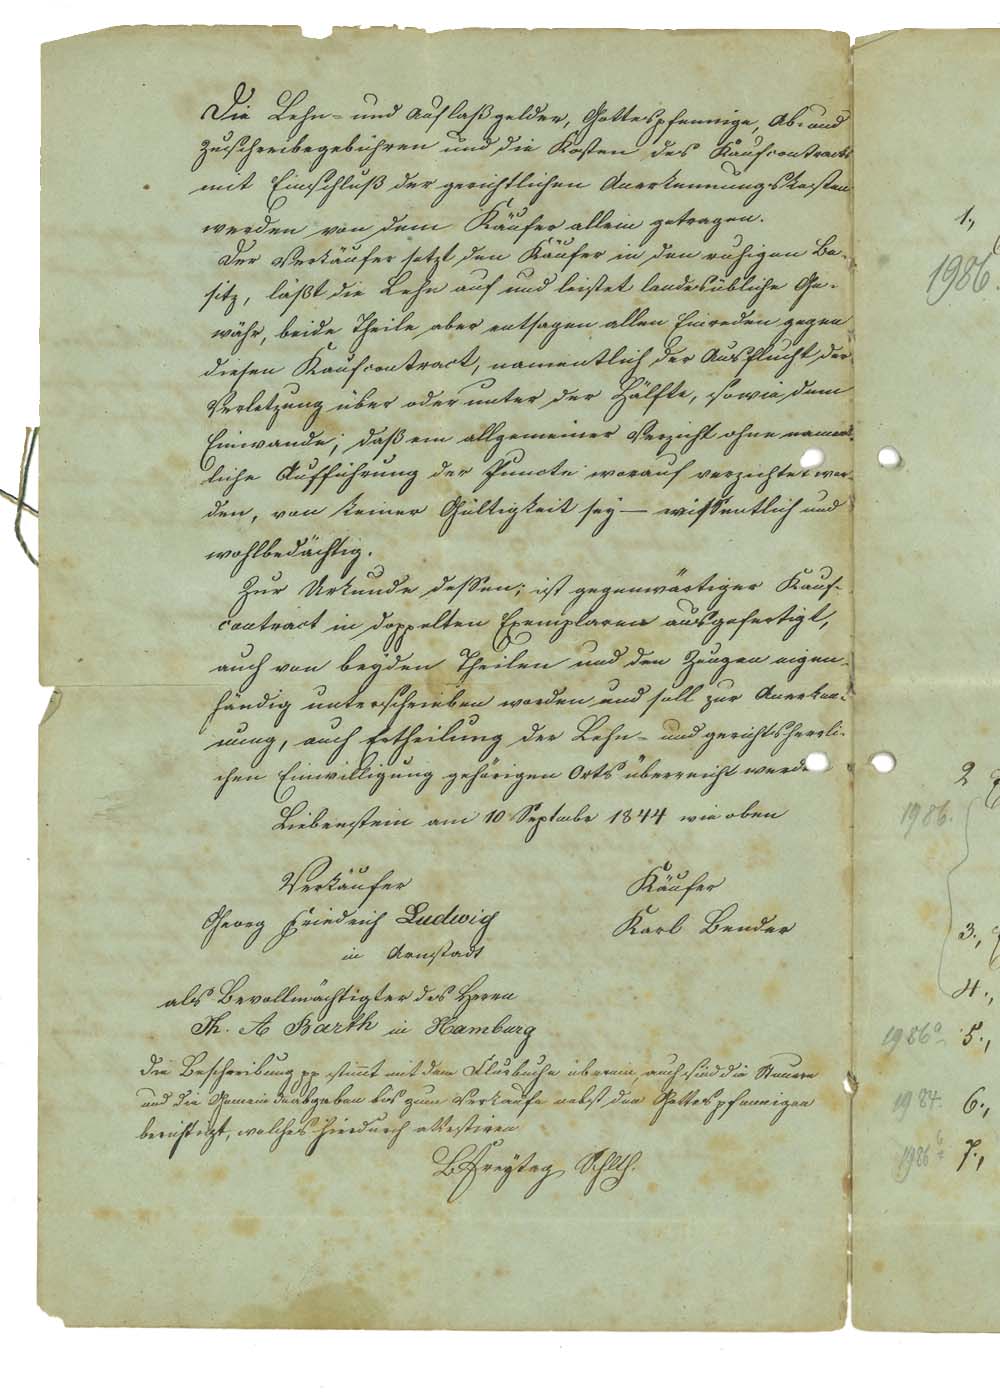 Die Lehn- und Auflaßgelder, Gottespfennige, Ab- und
Zuschreibegebühren und die Kosten des Kaufcontracts
mit Einschluß der gerichtlichen Anerkennungskosten
werden von dem Käufer allein getragen.
Der Verkäufer setzt den Käufer in den ruhigen Be-
sitz, läßt die Lehn auf und leistet landesübliche Ge-
währ, beide Theile aber entsagen allen Einreden gegen
diesen Kaufcontract, namentlich der Ausflucht der
Verletzung über oder unter der Hälfte, sowie dem
Einwande; daß ein allgemeiner Verzicht ohne nament-
liche Aufführung der Puncte worauf verzichtet wor-
den, von keiner Gültigkeit sey — wissentlich und
wohlbedächtig.
Zur Urkunde dessen; ist gegenwärtiger Kauf-
contract in doppelten Exemplaren ausgefertigt,
auch von beyden Theilen und den Zeugen eigen-
händig unterschrieben worden und soll zur Anerken-
nung, auch Ertheilung der Lehn- und gerichtsherrli-
chen Einwilligung gehörigen Orts überreicht werde
Liebenstein am 10 Septembr 1844 wie oben
Verkäufer Käufer
Georg Friedrich Ludwig Karl Bender
in Arnstadt
als Bevollmächtigter des Herrn
Th. A Barth in Hamburg
Die Beschreibung pp stimt mit dem Flurbuche überein, auch sind die Steuern
und die Gemeindeabgaben bis zum Verkaufe nebst den Gottespfennigen
berichtigt, welches hierdurch attestiren
BFreytag Schlth.
1.,
1986.
2
1986.
3.,
4.,
1986a 5.,
1984. 6.,
1986b 7.,